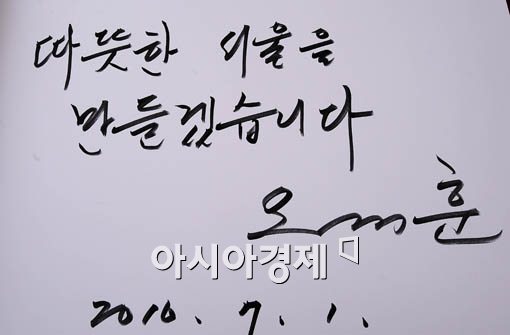 따뜻한 서울을
만들겠습니다
오세훈
아시아경제
2010. 7. 1.